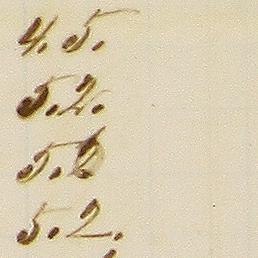 4.5.
5.2.
5.6
5.2.